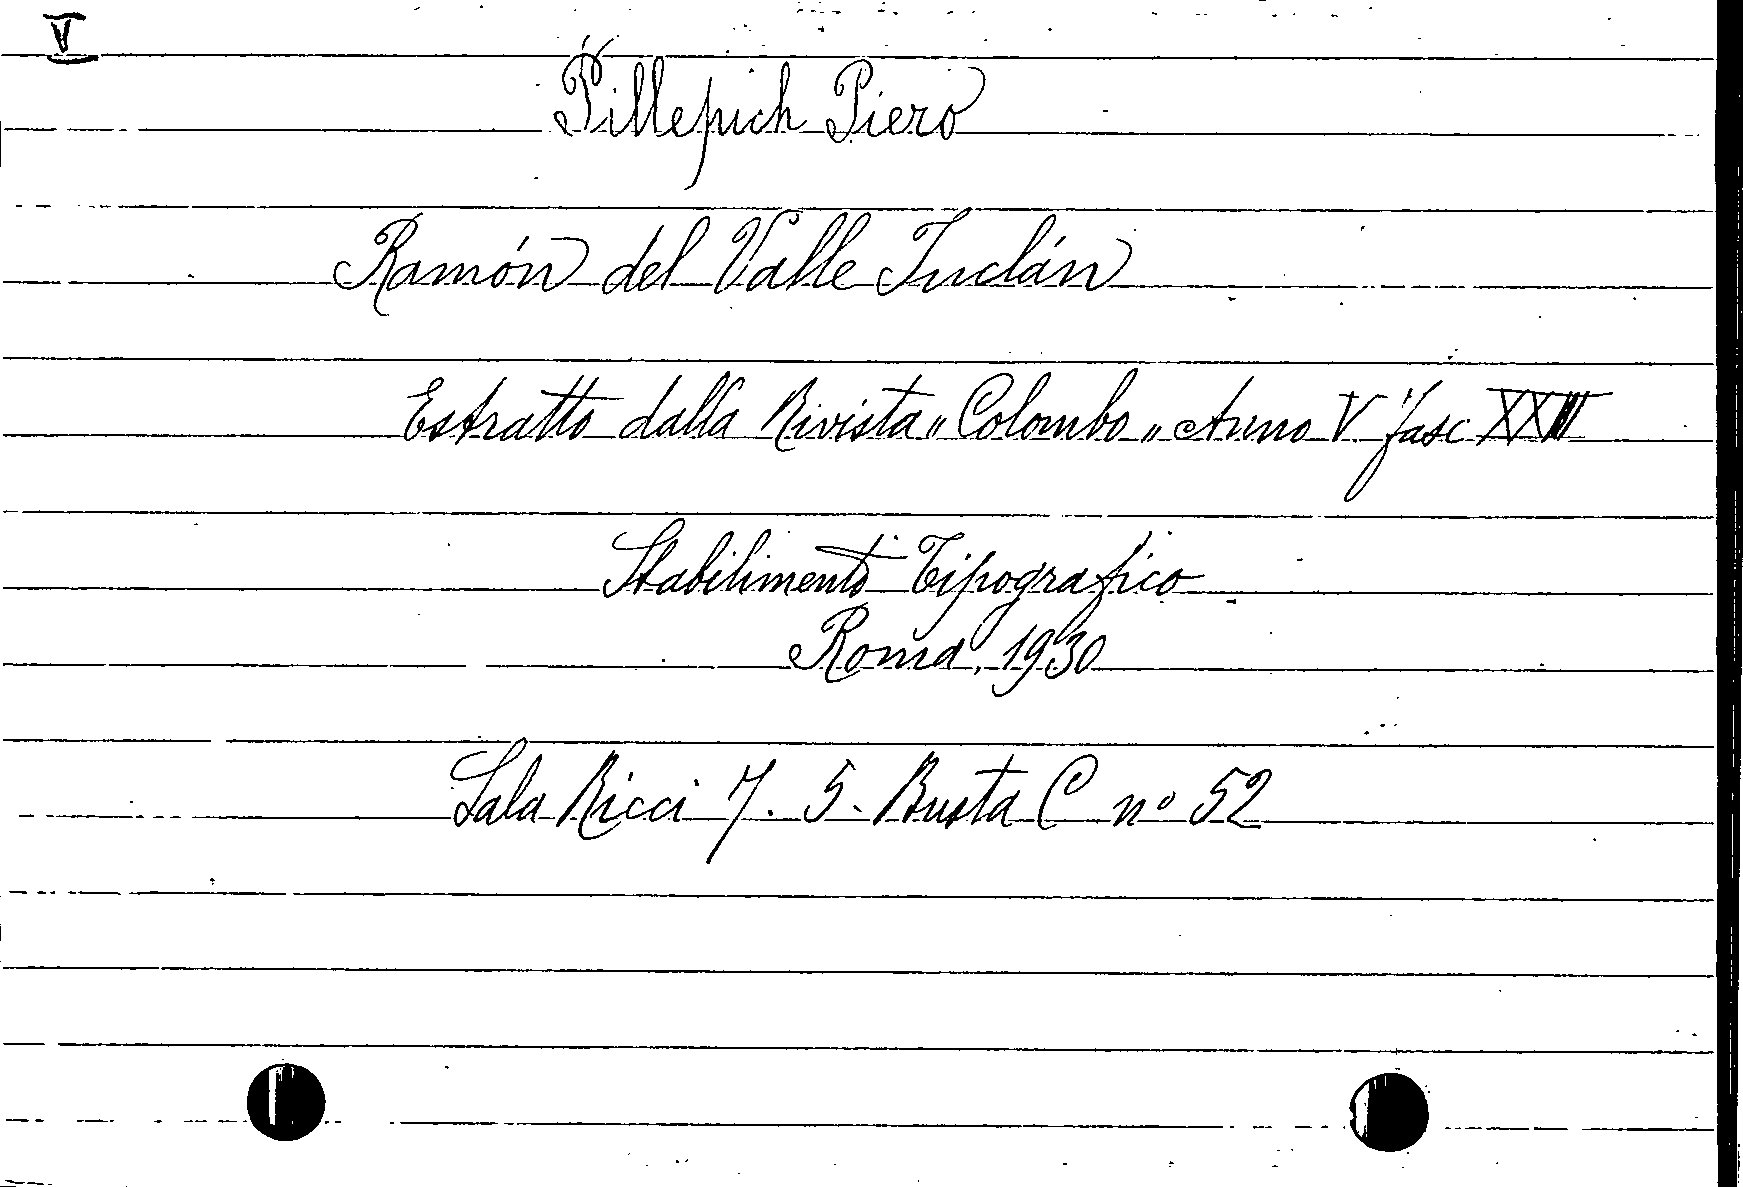 V
Pillepich Piero
Ramón del Valle Inclán
Estratto dalla Rivista „Colombo„ Anno V fasc XXIII
Stabilimento Tipografico
Roma, 1930
Sala Ricci 7. 5. Busta C nº 52